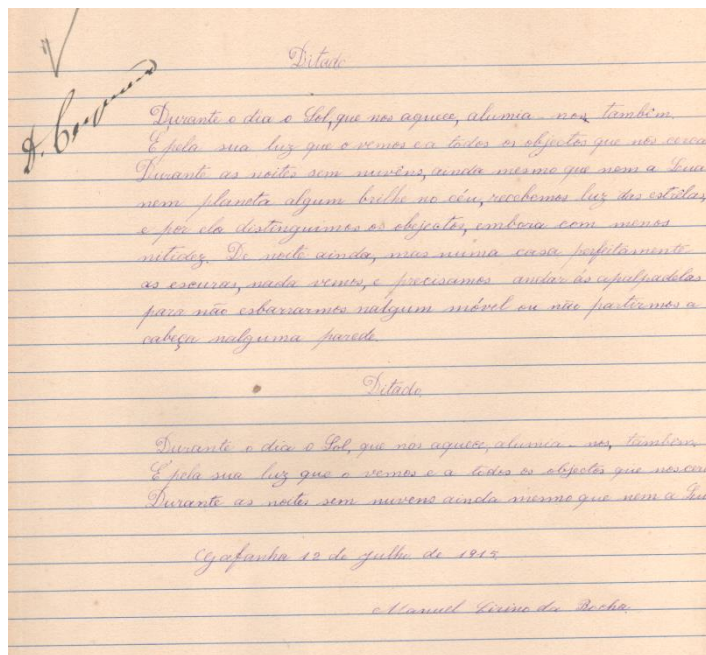 Ditado
Durante o dia o Sol, que nos aquece, alumia-nos, também.
É pela sua luz que o vemos e a todos os objectos que nos cerca
Durante as noites sem nuvêns, ainda mesmo que nem a Lua
nem planeta algum brilhe no céu, recebemos luz das estrêlas,
e por ela distinguimos os obejectos, embora com menos
nitidez. De noite ainda, mas numa casa perfeitamente
as escuras, nada vemos, e precisamos andar ás apalpadelas
para não esbarrarmos nalgum móvel ou não partirmos a
cabeça nalguma parede.
Ditado.
Durante o dia o Sol, que nos aquece, alumia-nos, também.
É pela sua luz que o vemos e a todos os objectos que nos cer
Durante as noites sem nuvens ainda mesmo que nem a Lu
Gafanha 12 de Julho de 1915
Manuel Cirino da Rocha.